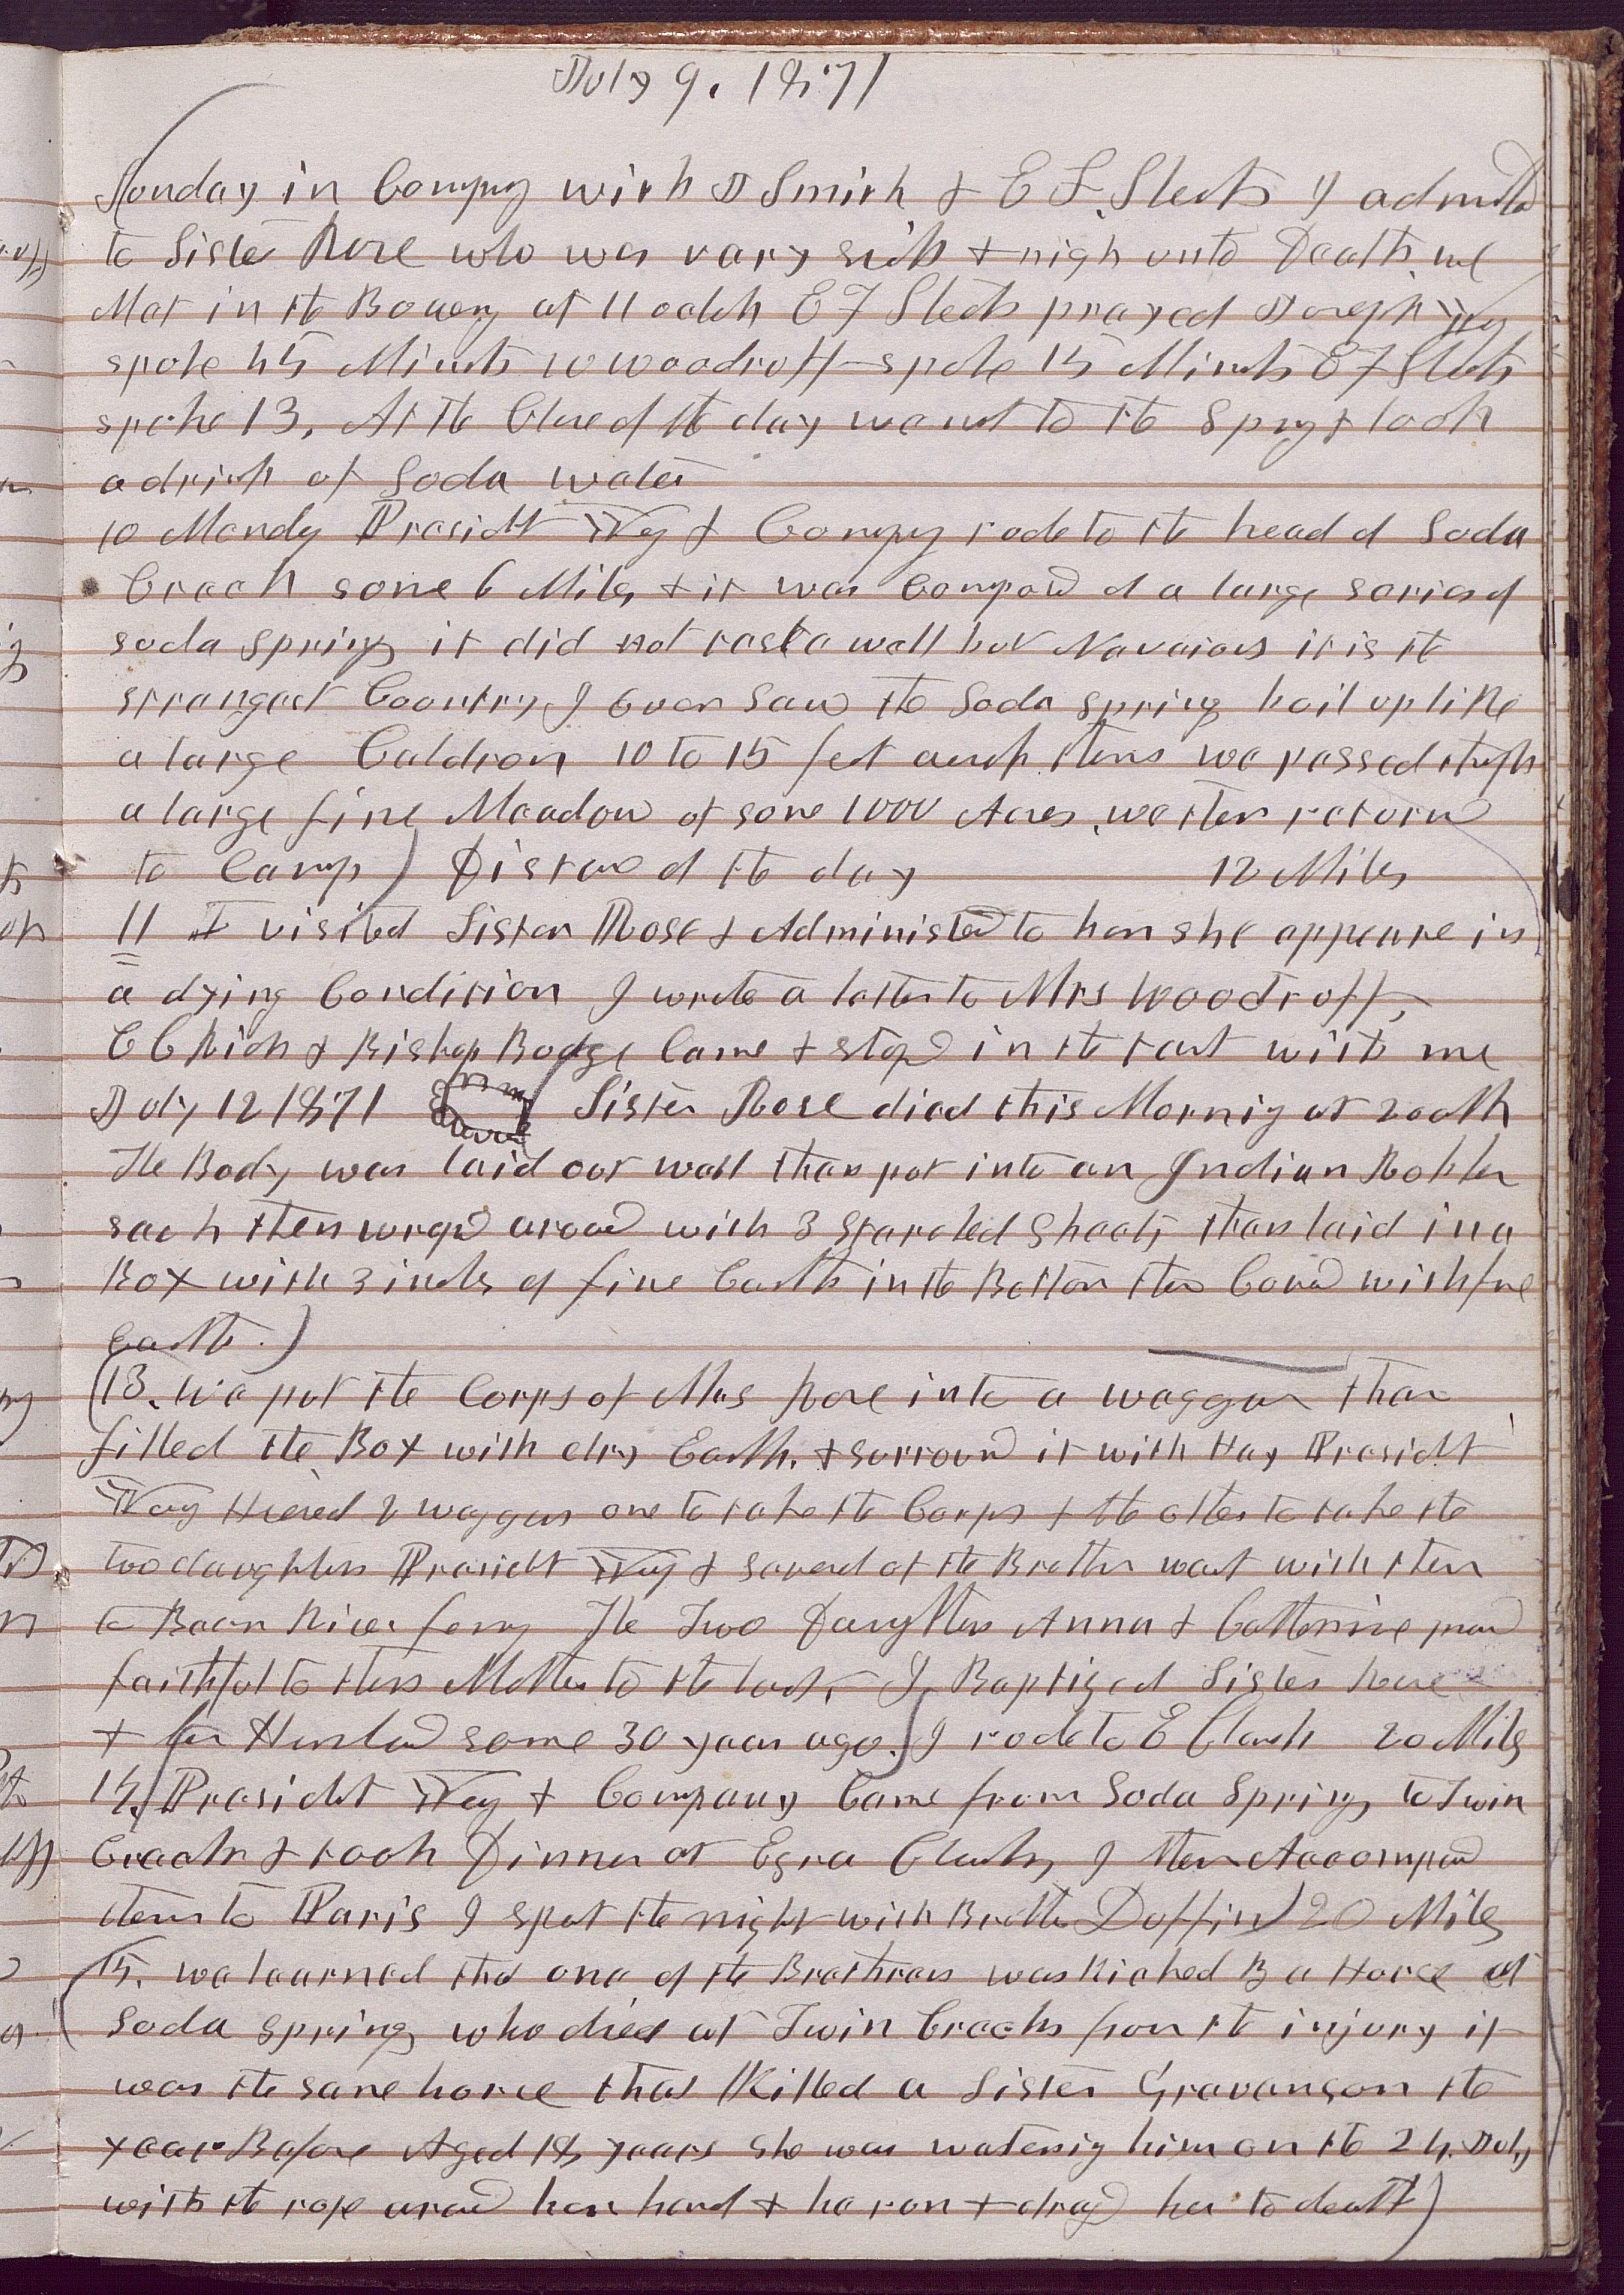 July 9, 1871
Sunday in Compny with J Smith & E F. Sheets I admstd
to Sister Rose who was vary sick & nigh unto Death. we
Met in the Bowery at 11 oclok E F Sheets prayed Joseph Yg
spoke 45 Minuts W Woodruff spoke 15 Minuts E F Sheets
spoke 13, At the Close of the day we went to the Spring & took
a drink of Soda water
10 Mondy Presidt Yg & Company rode to the head of Soda
Creek some 6 Miles & it was Composed of a large series of
soda springs it did not taste well but Navaious it is the
strangest Country I ever saw the Soda spring boil up like
a large Caldron 10 to 15 feet across then we passed through
a large fine Meadow of some 1000 Acres. we then returnd
to Camp) Distance of the day 12 Miles
11 I visited Sister Rose & Administerd to her she appeare in
a dying Condition I wrote a letter to Mrs Woodruff,
C C Rich & Bishop Budge Came & stopd in the tent with me
July 12 1871 Sister Rose died this Morning at 2 oclok
The Body was laid out well then put into an Indian Rubber
sack then wrapd around with 3 Starched Sheets then laid in a
Box with 3 inches of fine Earth in the Bottom then Coverd with fine
Earth.)
(13. We put the Corps of Mrs Rose into a waggon then
filled the Box with dry Earth, & surround it with Hay Presidt
Young Hiered 2 waggons one to take the Corps & the other to take the
two daughters Presidt Yg & several of the Brethren went with them
to Bear River ferry The Two Daughters Anna & Catherine proved
faithful to their Mother to the last, I Baptized Sister Rose
& her Husband some 30 years ago.) I rode to E Clark 20 Miles
14. Presidt Yg & Company Came from Soda Springs to Twin
Creeks & took Dinner at Ezra Clarks, I then Accompanied
them to Paris I spent the night with Brother Duffin) 20 Miles
(15. we learned that one of the Brethren was Kicked By a Horse at
Soda Springs who died at Twin Creeks from the injury it
was the same horse that Killed a Sister Gravanson the
year Before Aged 18 years she was watering him on the 24 July
with the rope around her hand & he ran & dragd her to death)